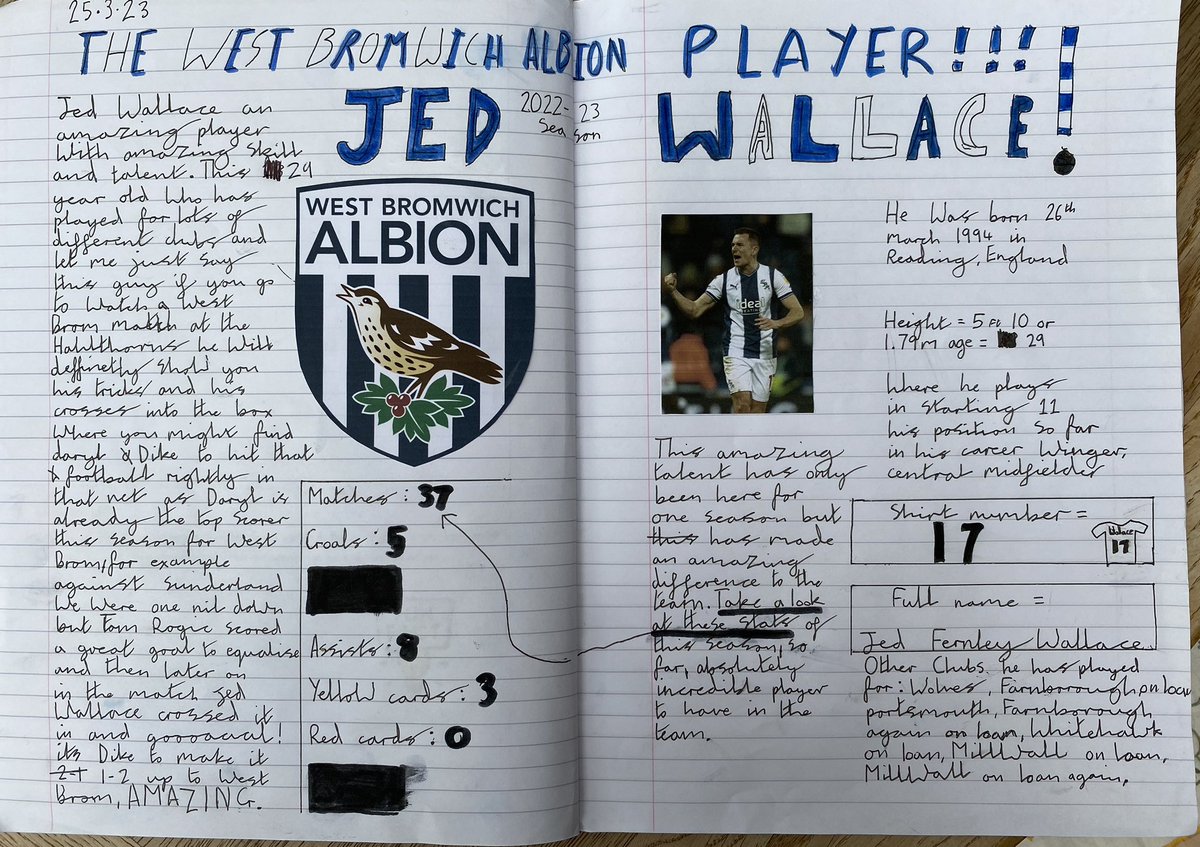 25.3.23
THE WEST BROMWICH ALBION PLAYER!!!!
JED WALLACE!
2022-23
Season
Jed Wallace an
amazing player
with amazing skill
and talent. This 29
year old who has
played for lots of
different clubs and
let me just say
this guy if you go
to watch a West
Brom match at the
Hawthorns he will
deffinetly show you
his tricks and his
crosses into the box
where you might find
daryl Dike to hit that
football rightly in
that net as Daryl is
already the top scorer
this season for West
Brom, for example
against Sunderland
We were one nil down
but Tom Rogic scored
a great goal to equalise
and then later on
in the match Jed
Wallace crossed it
in and goooaaal!
its Dike to make it
2-1 1-2 up to West
Brom, AMAZING.
WEST BROMWICH
ALBION
Matches: 37
Goals: 5
Assists: 8
Yellow cards: 3
Red cards: 0
ideal
This amazing
talent has only
been here for
one season but
this has made
an amazing
difference to the
team. Take a look
at these stats of
this season, so
far, absolutely
incredible player
to have in the
team.
He was born 26th
march 1994 in
Reading, England
Height = 5 Ft 10 or
1.79m age = 29
Where he plays
in starting 11
his position so far
in his career Winger,
central midfielder
Shirt number =
17
Wallace
17
Full name =
Jed Fernley Wallace
Other Clubs he has played
for: Wolves, Farnborough on loan
portsmouth, Farnborough
again on loan, Whitehawk
on loan, Millwall on loan,
Millwall on loan again,